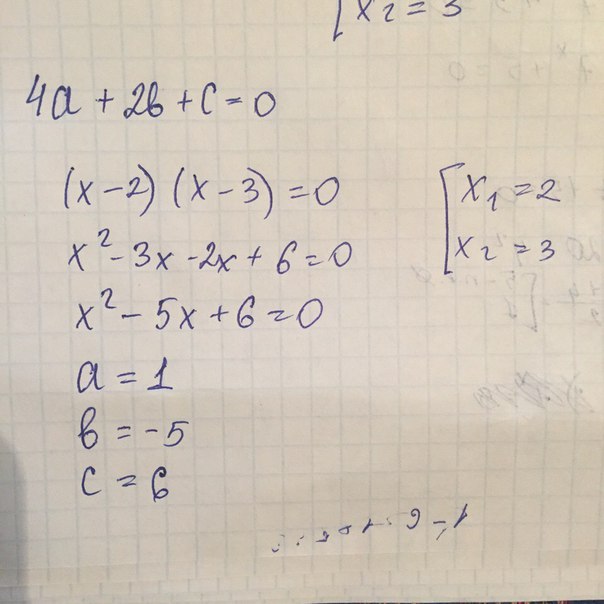 [ x₂ = 3
4a + 2b + c = 0
(x - 2) (x - 3) = 0
x² - 3x - 2x + 6 = 0
x² - 5x + 6 = 0
a = 1
b = -5
c = 6
[ x₁ = 2
x₂ = 3